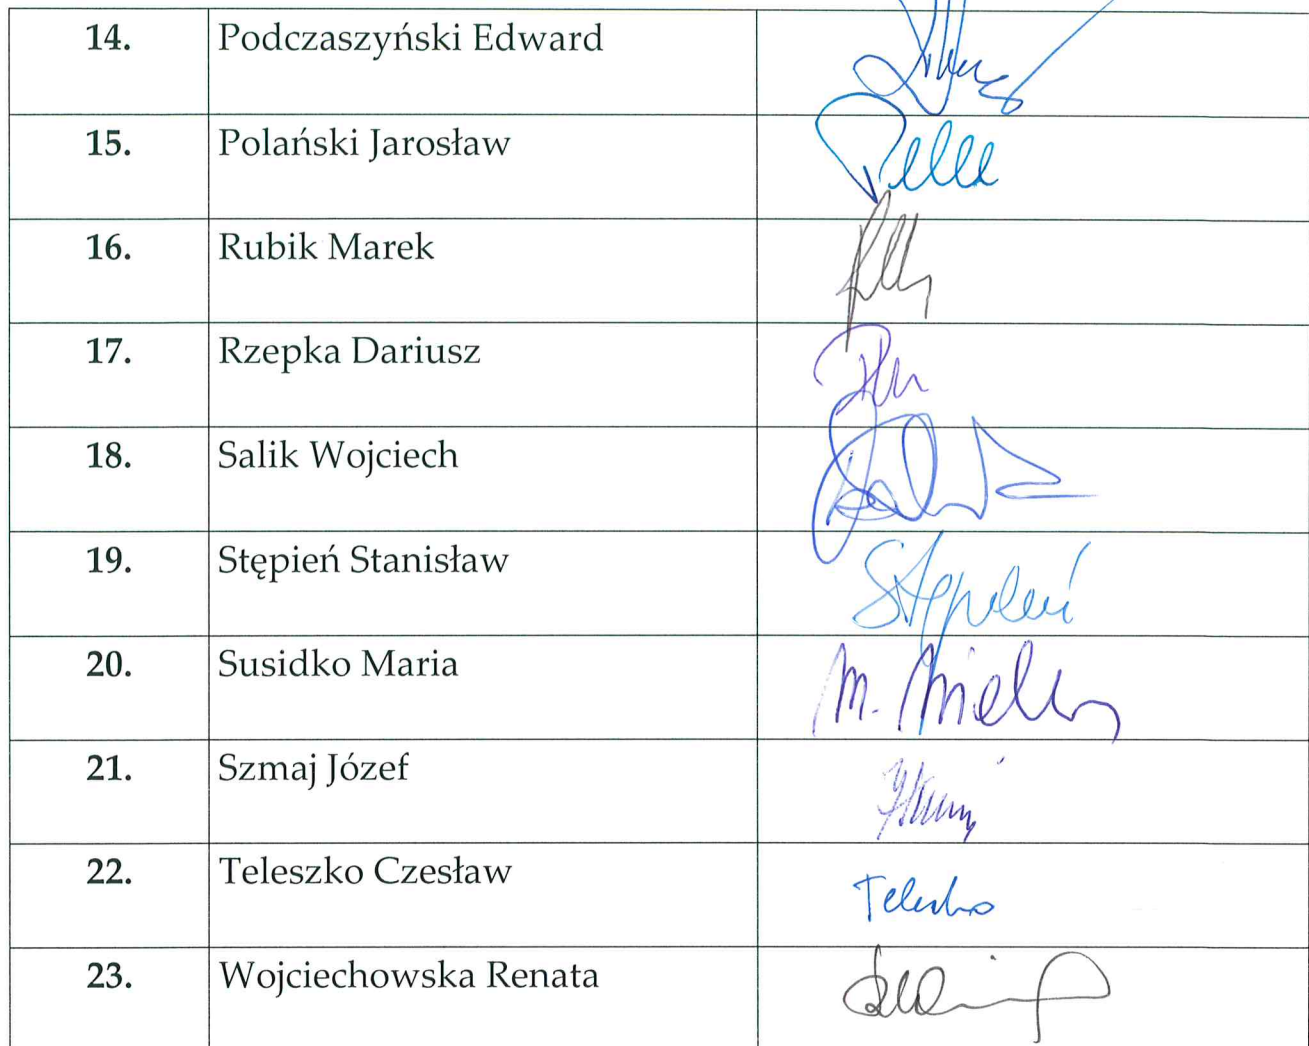 14. Podczaszyński Edward
15. Polański Jarosław
16. Rubik Marek
17. Rzepka Dariusz
18. Salik Wojciech
19. Stępień Stanisław Stępień
20. Susidko Maria M.
21. Szmaj Józef
22. Teleszko Czesław Teleszko
23. Wojciechowska Renata